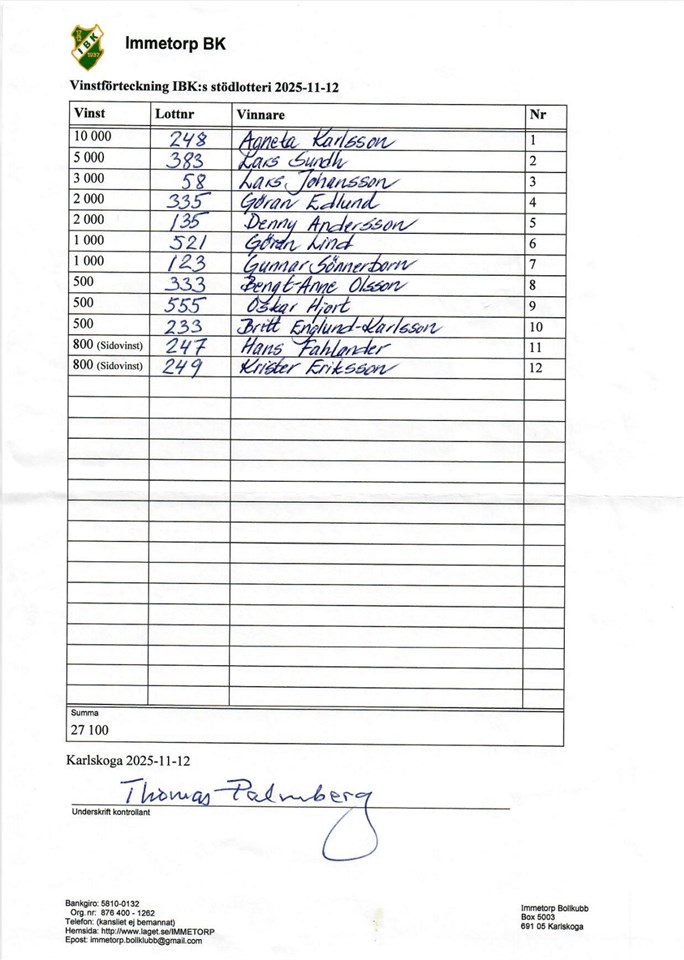 IBK
Immetorp BK
Vinstförteckning IBK:s stödlotteri 2025-11-12
Vinst Lottnr Vinnare Nr
10 000 248 Agneta Karlsson 1
5 000 383 Lars Sundh 2
3 000 58 Lars Johansson 3
2 000 335 Göran Edlund 4
2 000 135 Denny Andersson 5
1 000 521 Göran Lind 6
1 000 123 Gunnar Sönnerborn 7
500 333 Bengt-Arne Olsson 8
500 555 Oskar Hjort 9
500 233 Britt Englund-Karlsson 10
800 (Sidovinst) 247 Hans Fahlander 11
800 (Sidovinst) 249 Krister Eriksson 12
Summa
27 100
Karlskoga 2025-11-12
Thomas Palmberg
Underskrift kontrollant
Bankgiro: 5810-0132
Org.nr: 876 400 - 1262
Telefon: (kansliet ej bemannat)
Hemsida: http://www.laget.se/IMMETORP
Epost: immetorp.bollklubb@gmail.com
Immetorp Bollkubb
Box 5003
691 05 Karlskoga